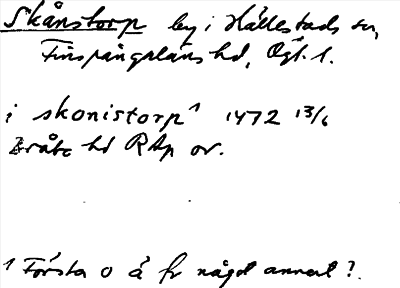 Skånstorp by i Hällestads sn,
Finspångaläns hd, Ögl.
i skonistorp¹ 1472 13/6
Bråbo hd RAp or.
¹ Första o å fr något annat?